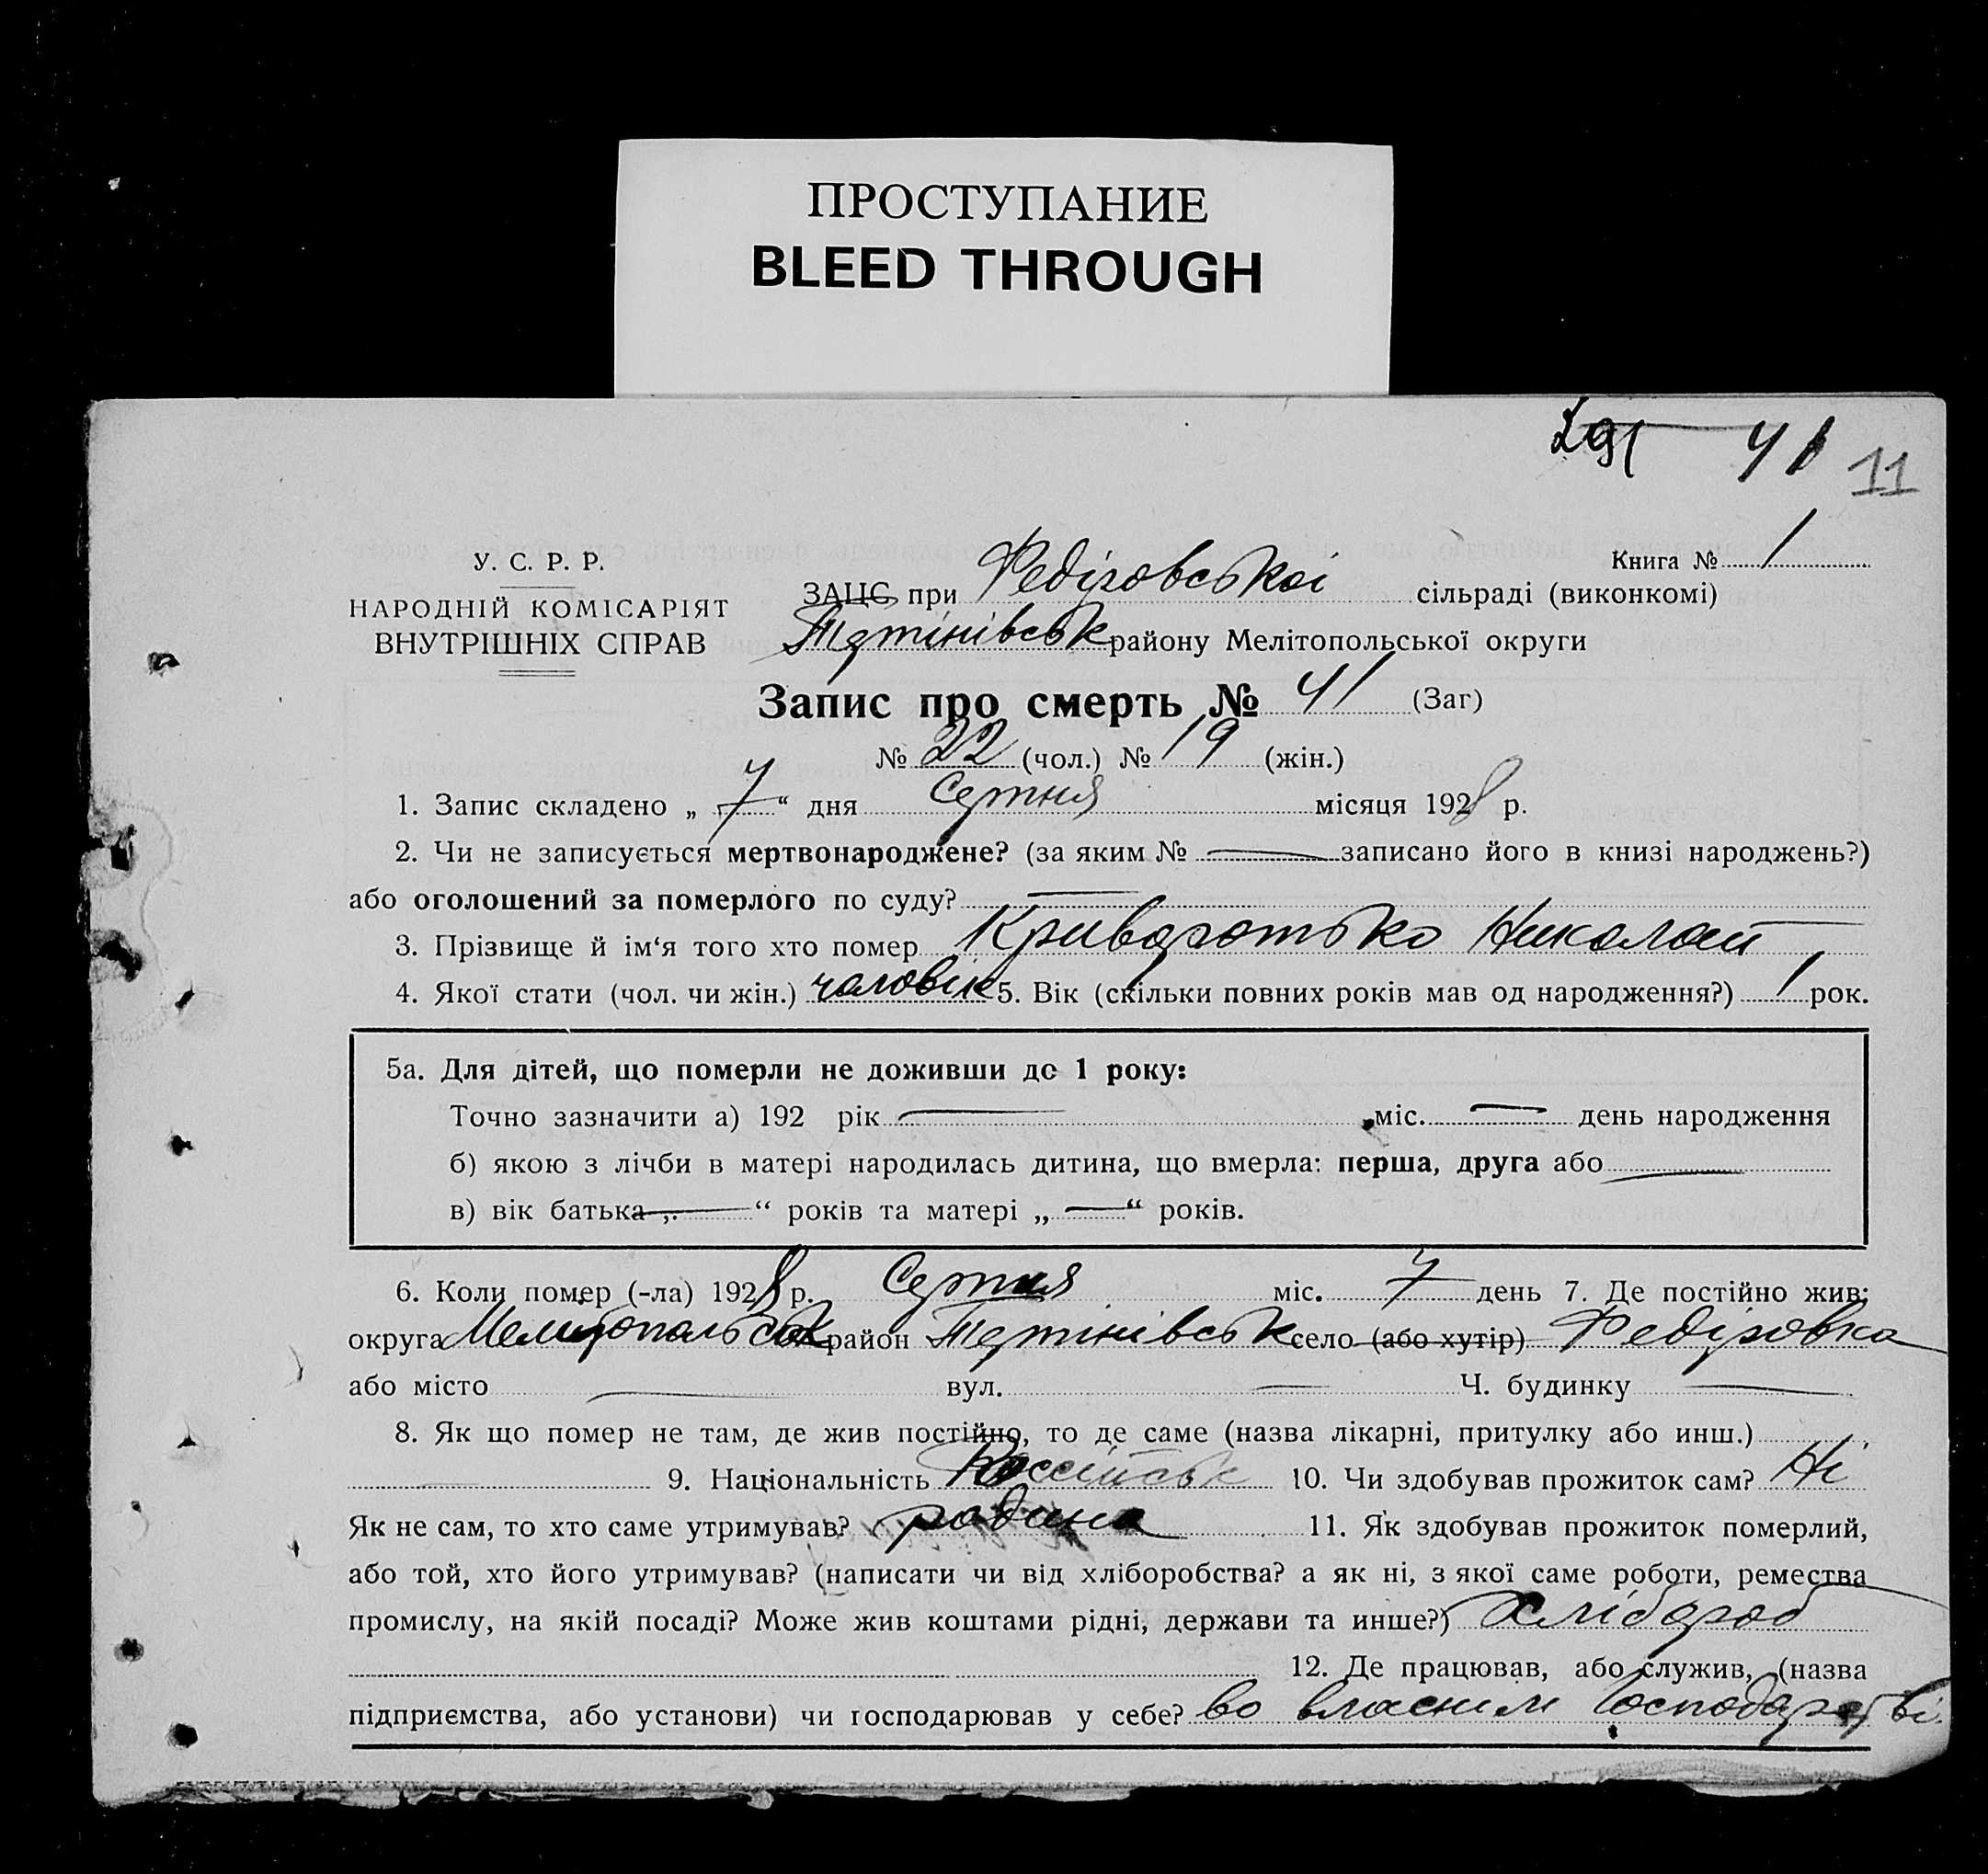 ПРОСТУПАНИЕ
BLEED THROUGH
291 41 11
У. С. Р. Р.
НАРОДНІЙ КОМІСАРІЯТ
ВНУТРІШНІХ СПРАВ
Книга № 1
ЗАЦС при Федіровської сільраді (виконкомі)
району Мелітопольської округи
Запис про смерть № 41 (Заг)
№ 22 (чол.) № 19 (жін.)
1. Запис складено „ 7 “ дня Серпня місяця 1928 р.
2. Чи не записується мертвонароджене? (за яким № записано його в книзі народжень?)
або оголошений за померлого по суду?
3. Прізвище й ім‘я того хто помер Николай
4. Якої стати (чол. чи жін.) чоловік 5. Вік (скільки повних років мав од народження?) 1 рок.
5а. Для дітей, що померли не доживши до 1 року:
Точно зазначити а) 192 рік міс. день народження
б) якою з лічби в матері народилась дитина, що вмерла: перша, друга або
в) вік батька „ “ років та матері „ “ років.
6. Коли помер (-ла) 1928 р. Серпня міс. 7 день 7. Де постійно жив:
округа Мелитопольськ район село (або хутір) Федіровка
або місто вул. Ч. будинку
8. Як що помер не там, де жив постійно, то де саме (назва лікарні, притулку або инш.)
9. Національність Россійськ 10. Чи здобував прожиток сам? Ні
Як не сам, то хто саме утримував? родина 11. Як здобував прожиток померлий,
або той, хто його утримував? (написати чи від хліборобства? а як ні, з якої саме роботи, ремества
промислу, на якій посаді? Може жив коштами рідні, держави та инше?) Хлібороб
12. Де працював, або служив, (назва
підприємства, або установи) чи господарював у себе? во власним Господарстві